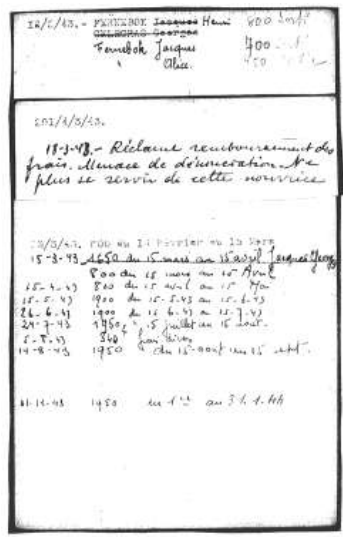 12/2/43.- FERNEBOK Jacques Henri 800
GELBGRAS Georges
Fernebok Jacques 700
Alice. 450
18-3-43.- Réclame remboursement des
frais. Menace de dénonciation. Ne
plus se servir de cette nourrice
15-3-43 1650 du 15 mars au 15 avril Jacques
800 du 15 mars au 15 Avril
15-4-43 800 du 15 avril au 15 Mai
15-5-43 1900 du 15-5-43 au 15-6-43
26-6-43 1900 du 15-6-43 au 15-7-43
24-7-43 1950 " 15 juillet au 15 août.
5-8-43 540 frais
14-8-43 1950 " du 15 août au 15 sept.
11-43 1950 du 1er au 31-1-44